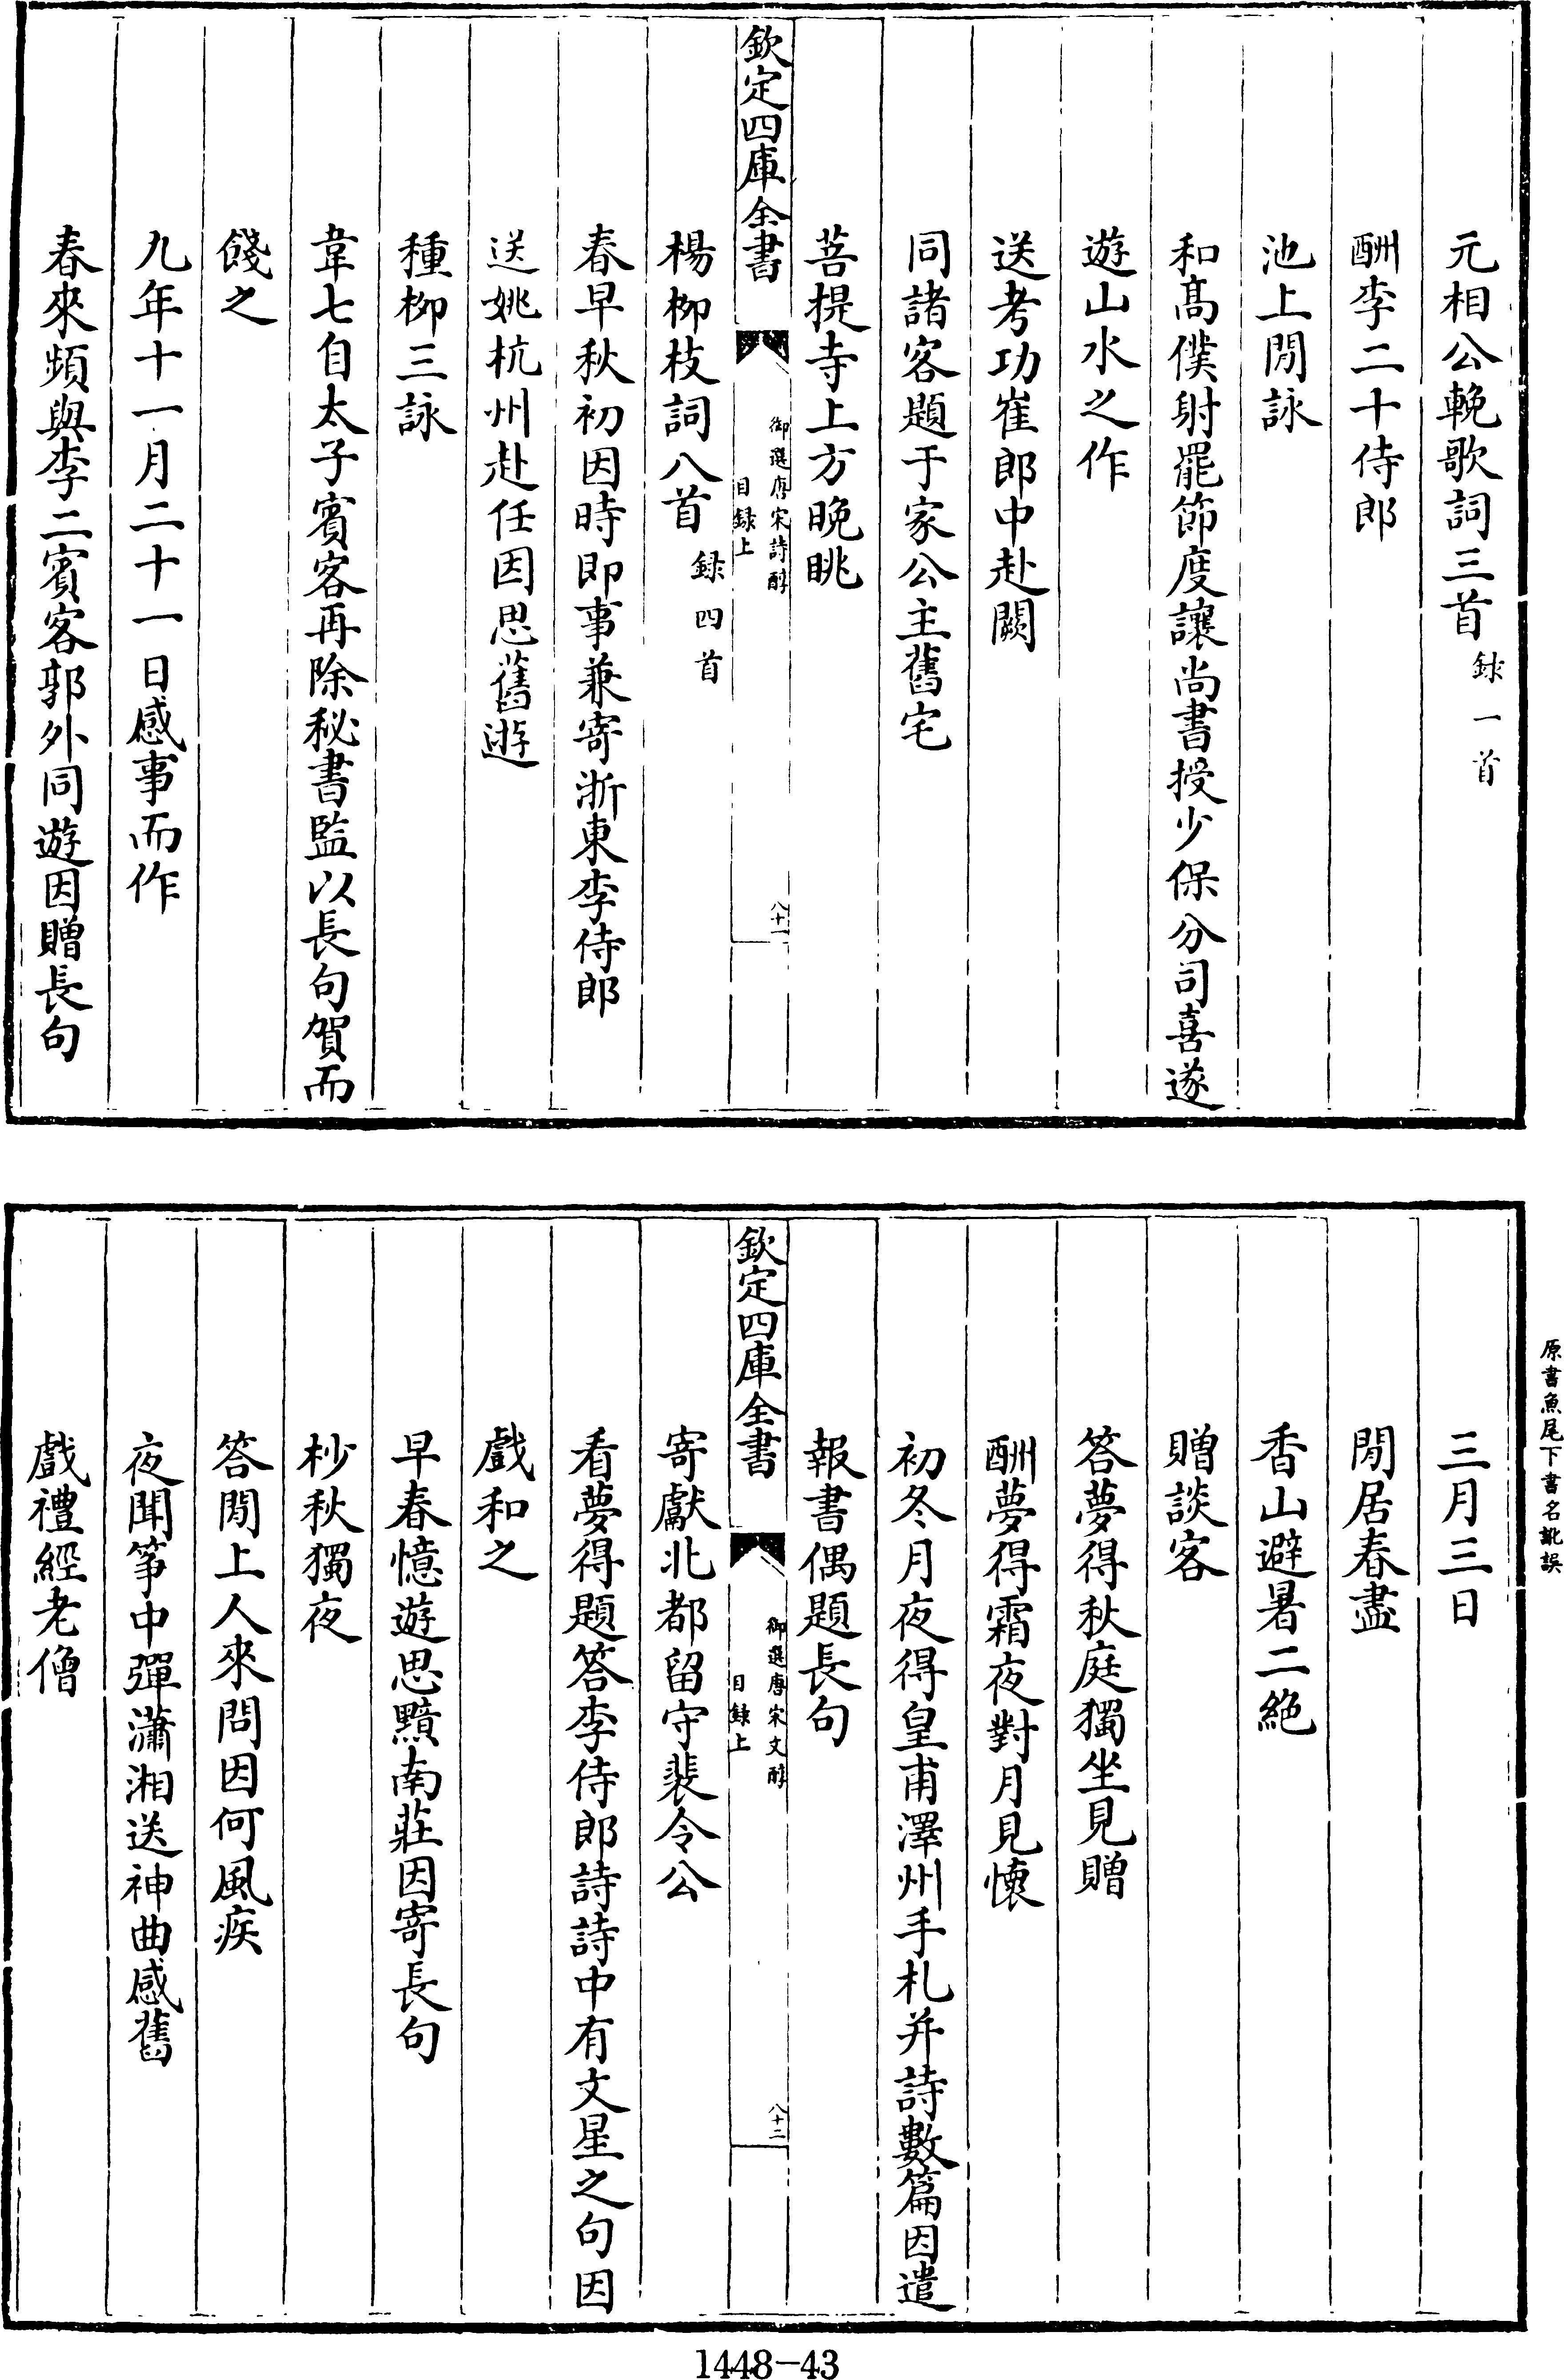 元相公輓歌詞三首錄一首
酬李二十侍郎
池上閒詠
和高僕射罷節度讓尚書授少保分司喜遂
遊山水之作
送考功崔郎中赴闕
同諸客題于家公主舊宅
菩提寺上方晚眺
欽定四庫全書
御選唐宋詩醇
目録上
八十一
楊柳枝詞八首録四首
春早秋初因時即事兼寄浙東李侍郎
送姚杭州赴任因思舊遊
種柳三詠
韋七自太子賓客再除秘書監以長句賀而
餞之
九年十一月二十一日感事而作
春來頻與李二賓客郭外同遊因贈長句
原書魚尾下書名訛誤
三月三日
閒居春盡
香山避暑二絶
贈談客
答夢得秋庭獨坐見贈
酬夢得霜夜對月見懷
初冬月夜得皇甫澤州手札并詩數篇因遣
報書偶題長句
欽定四庫全書
御選唐宋文醇
目録上
八十二
寄獻北都留守裴令公
看夢得題答李侍郎詩詩中有文星之句因
戲和之
早春憶遊思黯南莊因寄長句
杪秋獨夜
答閒上人來問因何風疾
夜聞箏中彈瀟湘送神曲感舊
戲禮經老僧
1448-43